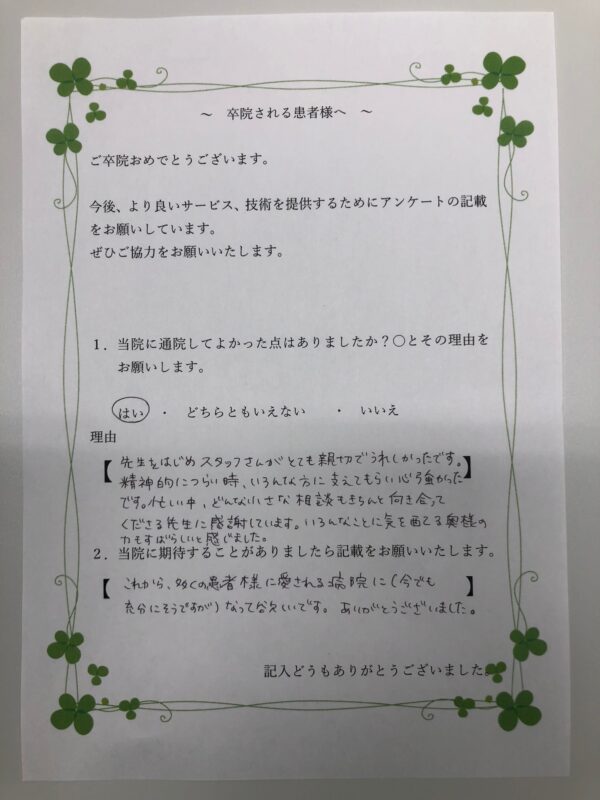 ～　卒院される患者様へ　～
ご卒院おめでとうございます。
今後、より良いサービス、技術を提供するためにアンケートの記載
をお願いしています。
ぜひご協力をお願いいたします。
１．当院に通院してよかった点はありましたか？〇とその理由を
お願いします。
はい　・　どちらともいえない　・　いいえ
理由
【先生をはじめスタッフさんがとても親切でうれしかったです。】
精神的につらい時、いろんな方に支えてもらい心強かった
です。忙しい中、どんな小さな相談もきちんと向き合って
くださる先生に感謝しています。いろんなことに気を配る奥様の
力もすばらしいと感じました。
２．当院に期待することがありましたら記載をお願いいたします。
【これから、多くの患者様に愛される病院に(今でも】
充分にそうですが)なってほしいです。ありがとうございました。
記入どうもありがとうございました。